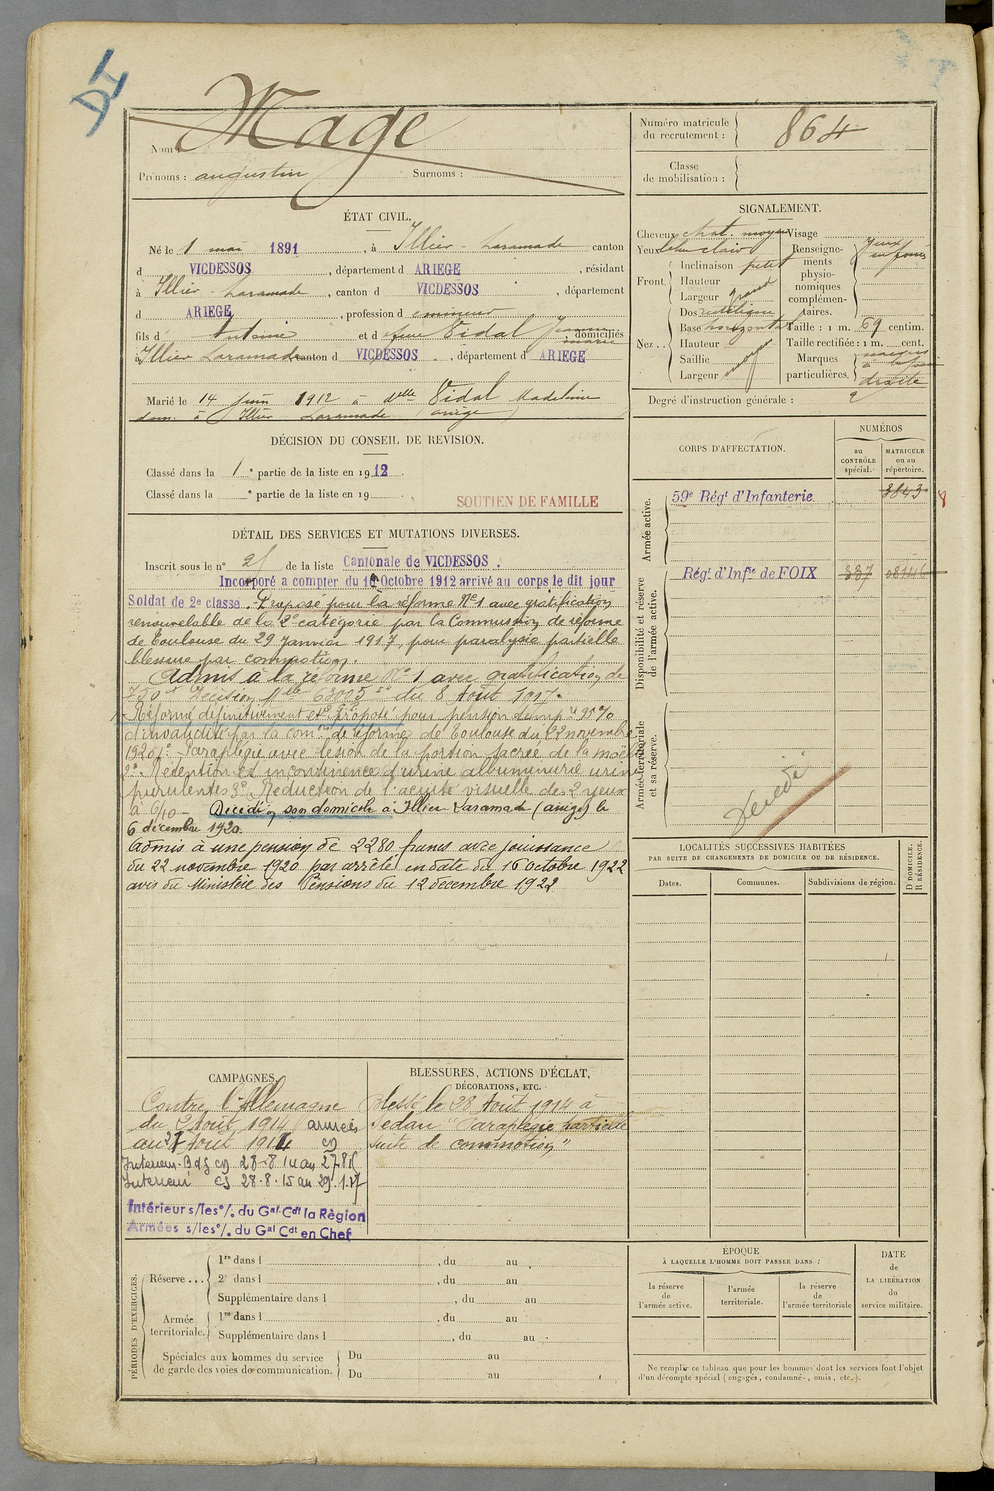 DI
Nom : Mage
Prénoms : augustin Surnoms :
Numéro matricule du recrutement : 864
Classe de mobilisation :
ÉTAT CIVIL.
Né le 1 mai 1891, à Illier-Laramade canton
d VICDESSOS, département d ARIEGE, résidant
à Illier-Laramade, canton d VICDESSOS, département
d ARIEGE, profession d
fils d Antoine et d Vidal domiciliés
à Illier Laramade canton d VICDESSOS, département d ARIEGE
Marié le 14 juin 1912 à dlle Vidal Madeleine
dom. à Illier Laramade ariège
SIGNALEMENT.
Cheveux chat. moyen Visage
Yeux clair
Front. Inclinaison
Hauteur
Largeur grand
Nez .. Dos rectiligne
Base horizontal
Hauteur
Saillie
Largeur
Renseignements physionomiques complémentaires.
Taille : 1 m. 69 centim.
Taille rectifiée : 1 m. cent.
Marques particulières. droite
Degré d'instruction générale : 2
DÉCISION DU CONSEIL DE REVISION.
Classé dans la 1e partie de la liste en 1912.
Classé dans la e partie de la liste en 19
SOUTIEN DE FAMILLE
CORPS D'AFFECTATION.
NUMÉROS
au CONTRÔLE spécial.
MATRICULE ou au répertoire.
Armée active.
59e Régt d'Infanterie. 3843
8
Disponibilité et réserve de l'armée active.
Régt d'Infie de FOIX 337
Armée territoriale et sa réserve.
Décédé
DÉTAIL DES SERVICES ET MUTATIONS DIVERSES.
Inscrit sous le n° de la liste Cantonale de VICDESSOS.
Incorporé a compter du 10 Octobre 1912 arrivé au corps le dit jour
Soldat de 2e classe. Proposé pour la réforme No 1 avec gratification
renouvelable de la 2e catégorie par la Commission de réforme
de Toulouse du 29 Janvier 1917, pour paralysie partielle
blessure par commotion.
Admis à la réforme No 1 avec gratification de
750 Décision Mlle 63005 du 8 Août 1917.
Réformé définitivement et Proposé pour pension temp.re 95 %
d'invalidité par la comon de réforme de Toulouse du 22 novembre
1920 1° Paraplégie avec lésion de la portion sacrée de la moëlle
2° Rétention et incontinence d'urine albuminurie urines
purulentes 3° Réduction de l'acuité visuelle des 2 yeux
à 6/10 - Décédé en son domicile à Illier Laramade (ariège) le
6 décembre 1920.
Admis à une pension de 2280 francs avec jouissance
du 22 novembre 1920 par arrêté en date du 16 octobre 1922
avis du Ministère des Pensions du 12 décembre 1922
LOCALITÉS SUCCESSIVES HABITÉES
PAR SUITE DE CHANGEMENTS DE DOMICILE OU DE RÉSIDENCE.
Dates. Communes. Subdivisions de région. D DOMICILE. R RÉSIDENCE.
CAMPAGNES.
Contre l'Allemagne
du 2 Août 1914 armées
au 27 Août 1914
Intérieur 28-8-14 au
Intérieur 28.8.15 au 29.1.17
Intérieur s/les o/. du Gal Cdt la Région
Armées s/les o/. du Gal Cdt en Chef
BLESSURES, ACTIONS D'ÉCLAT,
DÉCORATIONS, ETC.
Blessé le 28 Août 1914 à
Sedan "Paraplégie partielle
suite de commotion"
PÉRIODES D'EXERCICES.
Réserve ... 1re dans l , du au
2e dans l , du au
Supplémentaire dans l , du au
Armée territoriale. 1re dans l , du au
Supplémentaire dans l , du au
Spéciales aux hommes du service de garde des voies de communication. Du au
Du au
ÉPOQUE
À LAQUELLE L'HOMME DOIT PASSER DANS :
la réserve de l'armée active.
l'armée territoriale.
la réserve de l'armée territoriale
DATE de LA LIBÉRATION du service militaire.
Ne remplir ce tableau que pour les hommes dont les services font l'objet
d'un décompte spécial (engagés, condamnés, omis, etc.).